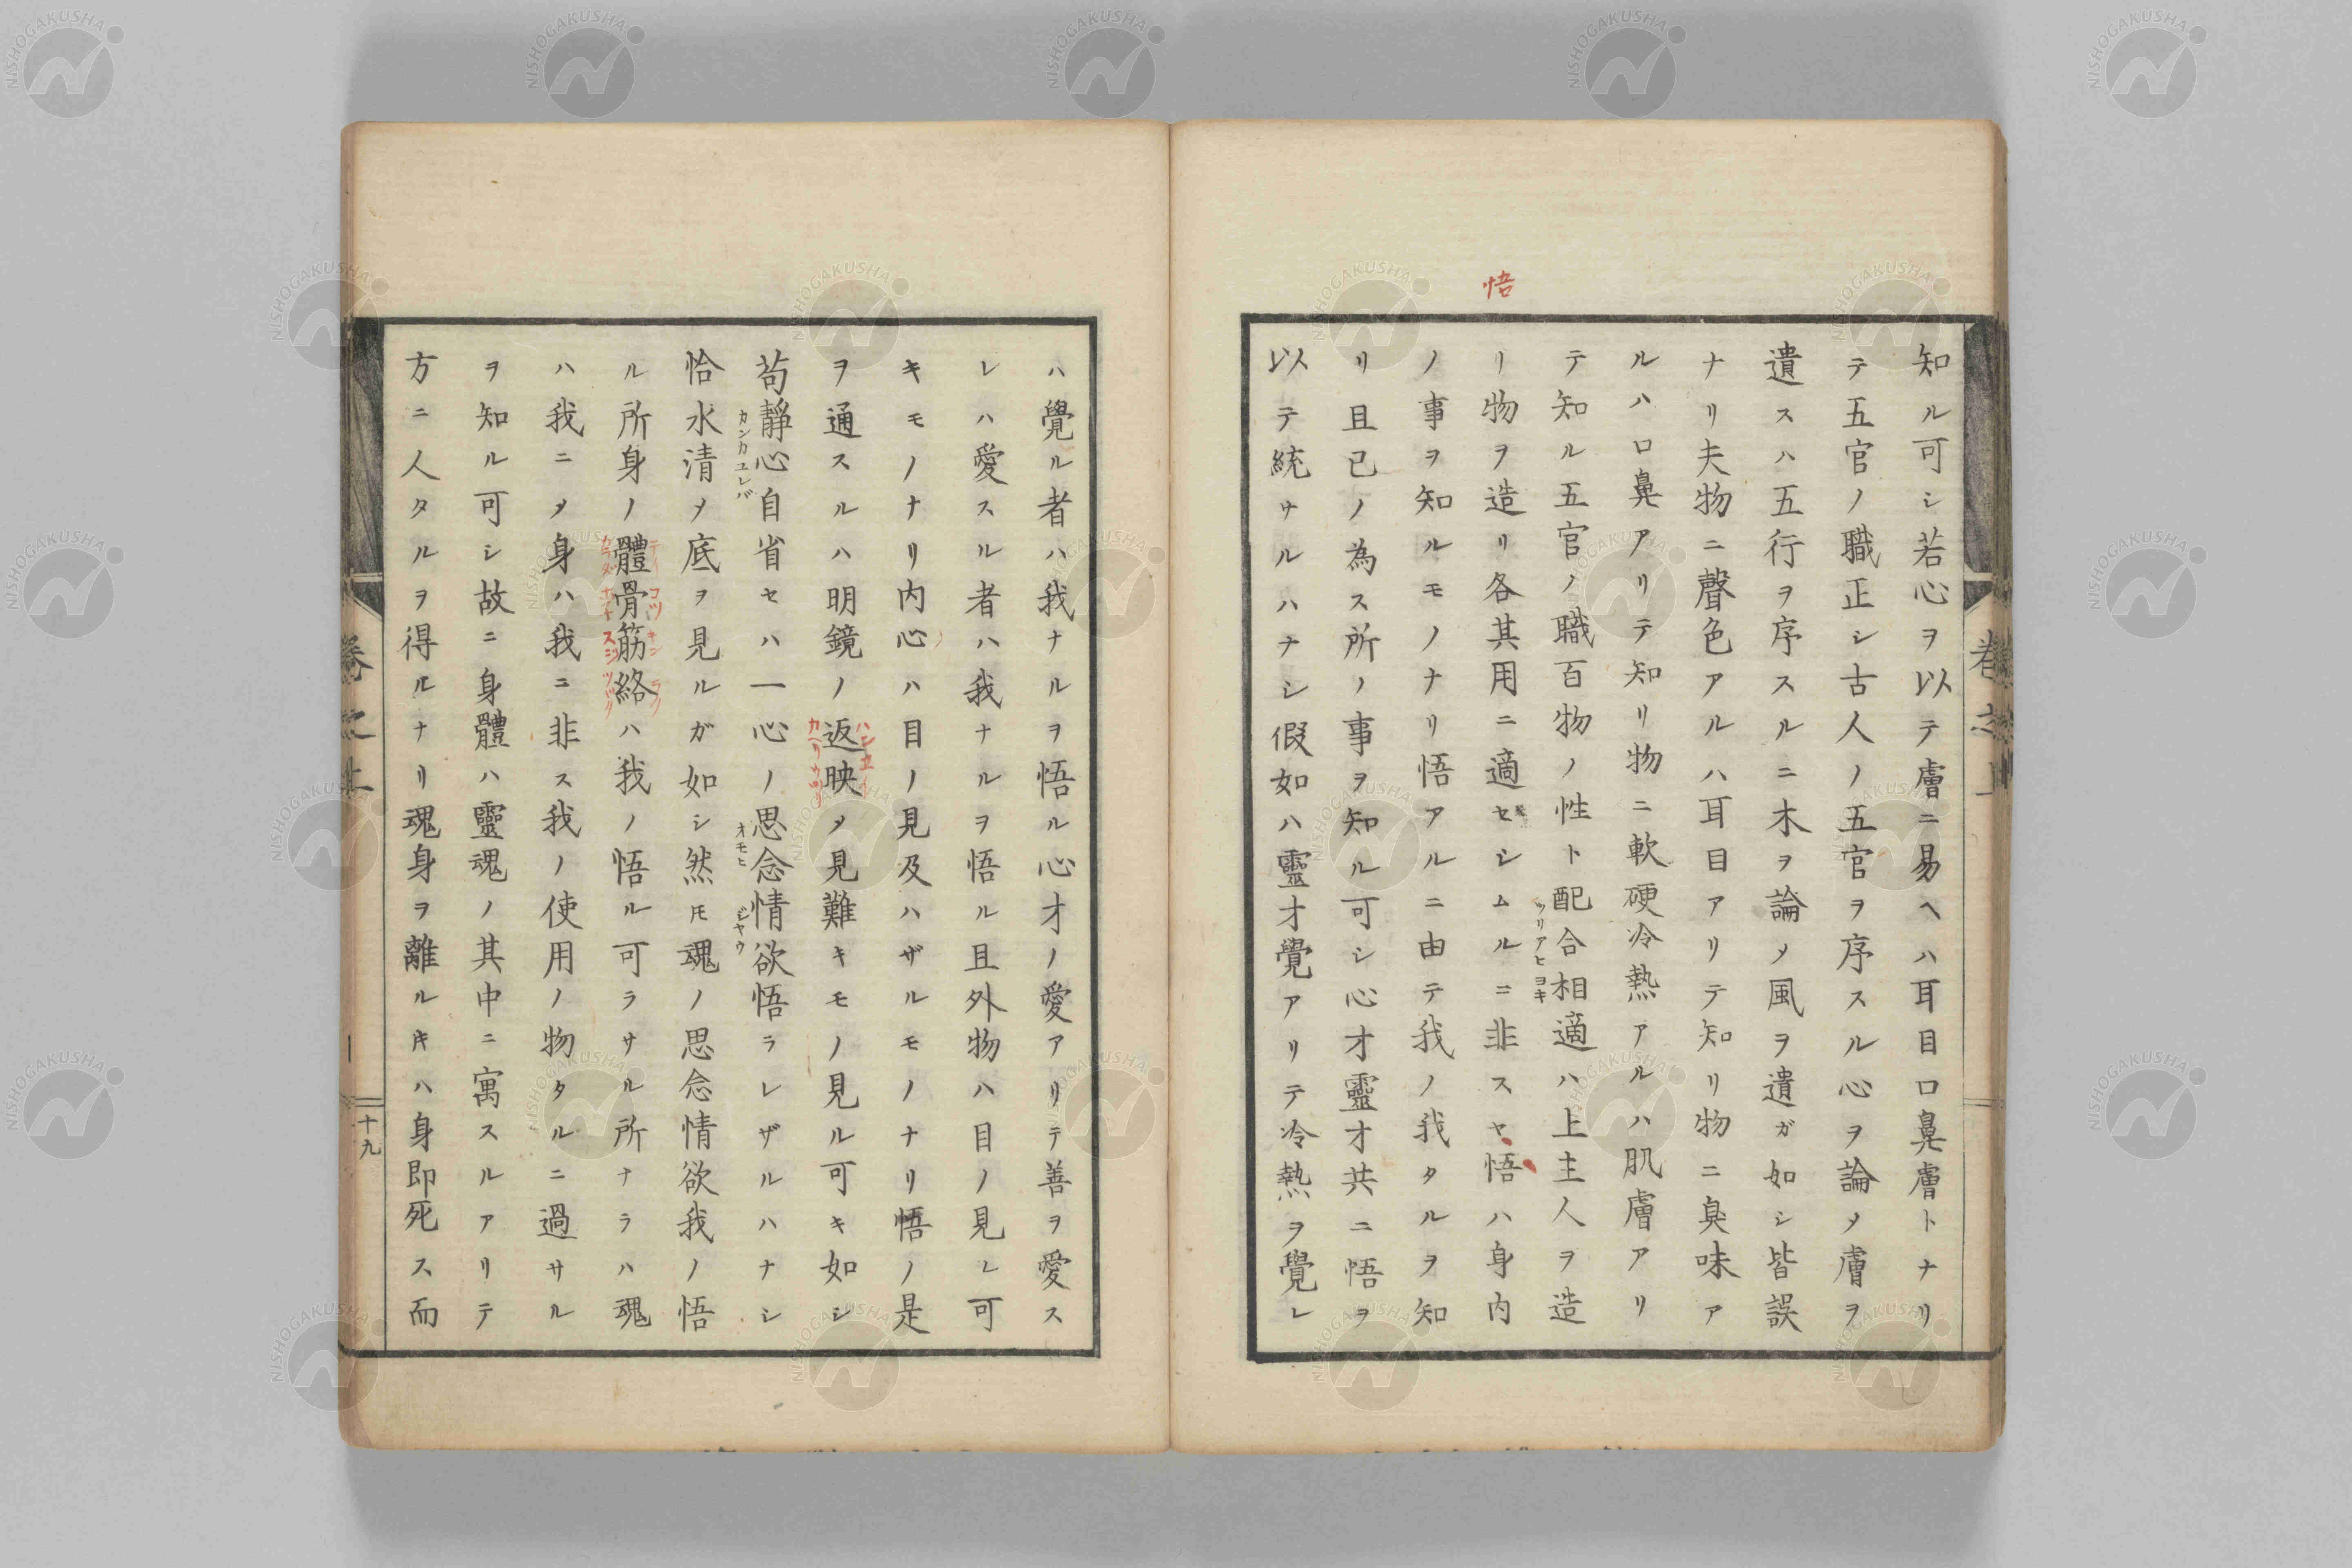 悟
知ル可シ若心ヲ以テ膚ニ易ヘハ耳目口鼻膚トナリ
テ五官ノ職正シ古人ノ五官ヲ序スル心ヲ論メ膚ヲ
遺スハ五行ヲ序スルニ木ヲ論メ風ヲ遺ガ如シ皆誤
ナリ夫物ニ聲色アルハ耳目アリテ知リ物ニ臭味ア
ルハ口鼻アリテ知リ物ニ軟硬冷熱アルハ肌膚アリ
テ知ル五官ノ職百物ノ性ト配合相適ハ上主人ヲ造
ツリアヒヨキ
リ物ヲ造リ各其用ニ適セシムルニ非スヤ悟ハ身内
ノ事ヲ知ルモノナリ悟アルニ由テ我ノ我タルヲ知
リ且已ノ為ス所ノ事ヲ知ル可シ心才靈才共ニ悟ヲ
以テ統サルハナシ假如ハ靈才覺アリテ冷熱ヲ覺レ
卷之上
ハ覺ル者ハ我ナルヲ悟ル心才ノ愛アリテ善ヲ愛ス
レハ愛スル者ハ我ナルヲ悟ル且外物ハ目ノ見レ可
キモノナリ内心ハ目ノ見及ハザルモノナリ悟ノ是
ヲ通スルハ明鏡ノ返映メ見難キモノ見ル可キ如シ
ハンエイ
カヘリウツリ
苟靜心自省セハ一心ノ思念情欲悟ラレザルハナシ
カンカユレバ
オモヒ
ジヤウ
恰水清メ底ヲ見ルガ如シ然モ魂ノ思念情欲我ノ悟
ル所身ノ體骨筋絡ハ我ノ悟ル可ラサル所ナラハ魂
テイコツキンラク
カラダホネスジツヾリ
ハ我ニメ身ハ我ニ非ス我ノ使用ノ物タルニ過サル
ヲ知ル可シ故ニ身體ハ靈魂ノ其中ニ寓スルアリテ
方ニ人タルヲ得ルナリ魂身ヲ離ルキハ身即死ス而
卷之上
十九